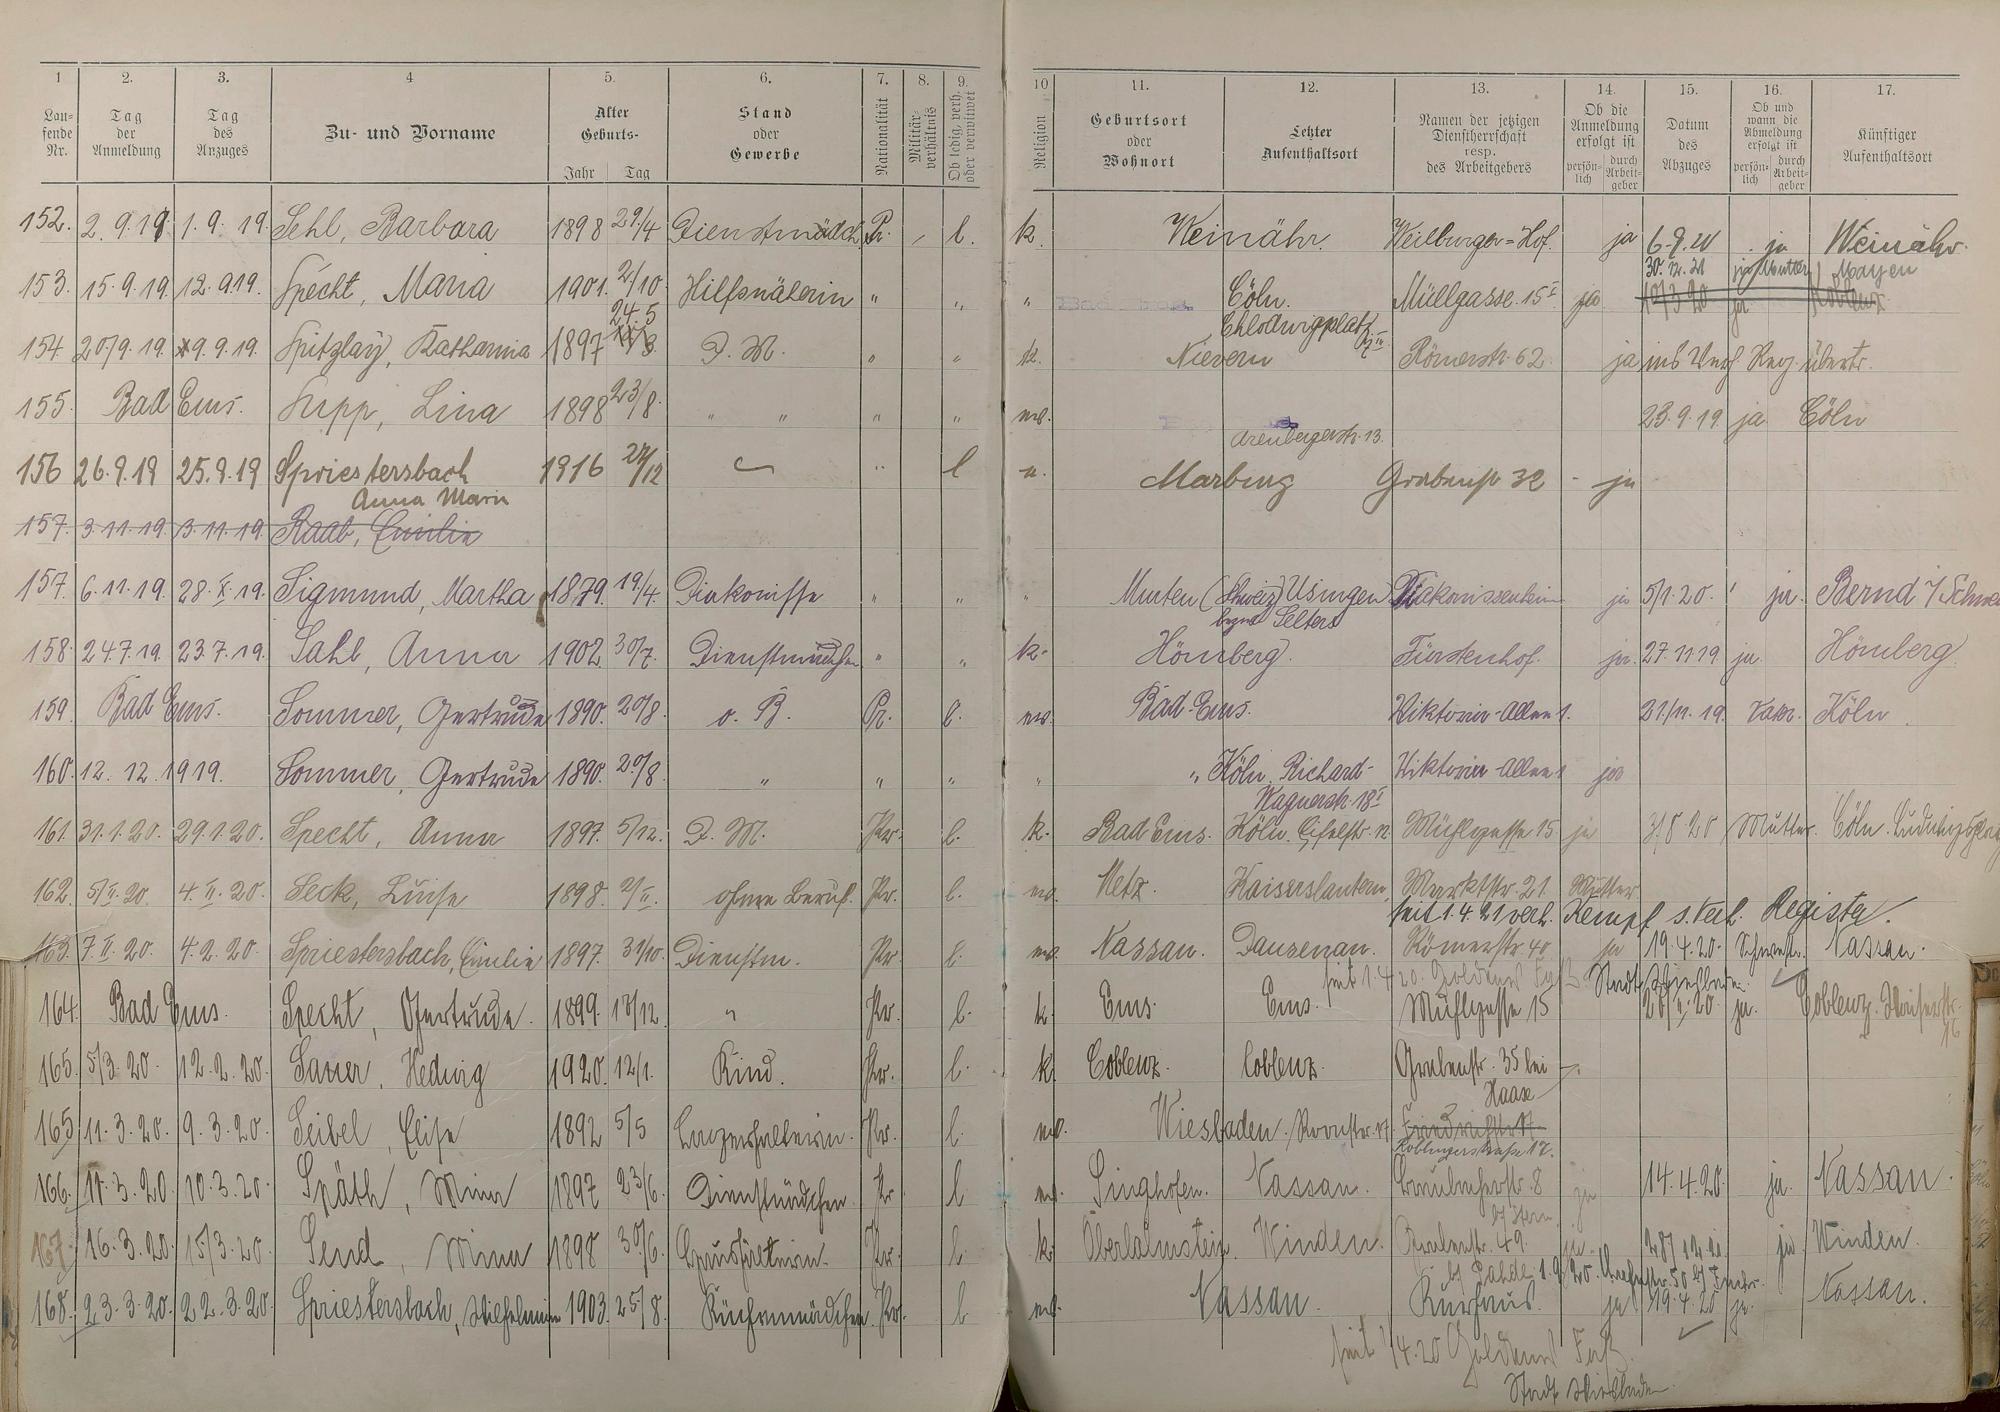 1 2. 3. 4 5. 6. 7. 8. 9. 10 11. 12. 13. 14. 15. 16. 17.
Lau-fende Nr. Tag der Anmeldung Tag des Anzuges Zu- und Vorname Alter Geburts- Jahr Tag Stand oder Gewerbe Nationalität Militär-verhältnis Ob ledig, verh. oder verwitwet Religion Geburtsort oder Wohnort Letzter Aufenthaltsort Namen der jetzigen Dienstherrschaft resp. des Arbeitgebers Ob die Anmeldung erfolgt ist persön-lich durch Arbeit-geber Datum des Abzuges Ob und wann die Abmeldung erfolgt ist persön-lich durch Arbeit-geber Künftiger Aufenthaltsort
152. 2. 9. 19 1. 9. 19. Sehl, Barbara 1898 29./4 Dienstmädch. Pr. l. k. Weinähr. Weilburger=Hof. ja 6.9.20 ja Weinähr.
30.12.20 Mutter Mayen
153. 15.9.19. 12.9.19. Specht, Maria 1901. 2/10 Hilfsnäherin " " " Cöln. Müllgasse. 15 I ja 10/3 20 ja Koblenz
24.5 Chlodwigplatz
154 20/9.19. 19.9.19. Spitzlay, Katharina 1897 D. M. " " k. Nievern Römerstr. 62. ja ins Verh. Reg. übertr.
155. Bad Ems. Supp, Lina 1898 23/8. " " " " 23.9.19. ja Cöln
Arenbergerstr. 13.
156 26.9.19 25.9.19 Spriestersbach 1916 l Marburg Grabenstr 32 - ja
Anna Marie
157. 3.11.19. 3.11.19. Raab, Emilie
157. 6.11.19. 28.X.19. Sigmund, Martha 1879. 19./4. Diakonisse " " " Murten (Schweiz) Usingen Diakonissenheim ja 5/1.20. ja. Bernd i/Schwei
Selters
158. 24.7.19. 23.7.19. Sahl, Anna 1902 30/7. Dienstmädchen " " k. Hömberg. Fürstenhof. ja. 27.11.19. ja. Hömberg.
159. Bad Ems. Sommer, Gertrude 1890. 20/8. o. B. Pr. l. Bad-Ems. Viktoria-Allee 1. 21/11.19. Vater. Köln.
160. 12. 12. 1919. Sommer, Gertrude 1890. 20/8. " " " " " Köln, Richard- Viktoria-Allee 1 ja
Wagnerstr. 18 I
161. 31.1.20. 29.1.20. Specht, Anna 1897. 5/12. D. M. Pr. l. k. Bad Ems. Köln. Eifelstr. 12 Mühlgasse 15 ja 31.8.20 Mutter. Cöln.
162. 5/II.20. 4.II.20. Seck, Luise 1898. 2/II. ohne Beruf. Pr. l. Metz. Kaiserslautern, Marktstr. 21. Mutter
seit 1.4.21 verh. Kempf s. Verh. Register.
163. 7.II.20. 4.2.20. Spriestersbach, Emilie 1897. 31/10. Dienstm. Pr. l. Nassau. Dausenau. Römerstr. 40 ja 19.4.20. Schwester. Nassau.
seit 1.4.20. Goldenes Faß Stadt Wiesbaden
164. Bad Ems. Specht, Gertrude. 1899. " Pr. l. k. Ems. Ems. Mühlgasse 15 ja. Coblenz.
165. 5/3.20. 12.2.20. Sauer, Hedwig 1920. 12/1. Kind. Pr. l. k. Coblenz. Coblenz. Grabenstr. 35 bei
Haase
165 11.3.20. 9.3.20. Seibel, Elise 1892 5/5 Pr. l. Wiesbaden. Roonstr. Friedrichstr.
Koblenzerstraße 17.
166. 11.3.20. 10.3.20. Späth, Mina 1897 23/6. Dienstmädchen. Pr l Singhofen. Nassau. 8 ja 14.4.20. ja. Nassau.
167. 16.3.20. 15/3.20 Send, Mina 1898 30/6. Haushälterin. Pr. l. k. Oberlahnstein. Winden. Grabenstr. 49. ja. ja Winden.
168. 23.3.20. 22.3.20. Spriestersbach, Wilhelmine 1903. 25/8. Küchenmädchen Pr. l Nassau. Kurhaus. ja 19.4.20 ja. Nassau.
seit 1/4.20 Goldenes Faß.
Stadt Wiesbaden